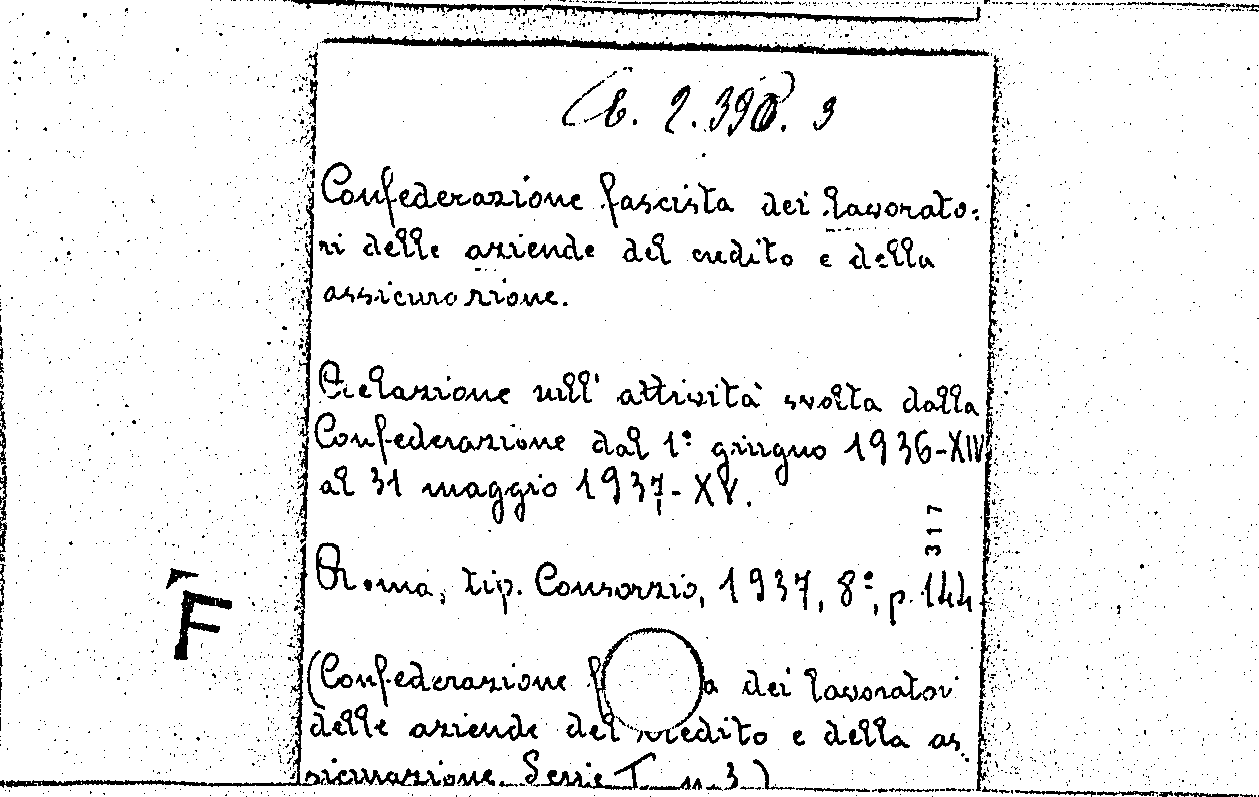 B. 2.390. 3
Confederazione fascista dei lavorato:
ri delle aziende del credito e della
assicurazione.
Relazione sull' attività svolta dalla
Confederazione dal 1° giugno 1936-XIV
al 31 maggio 1937-XV.
317
Roma, tip. Consorzio, 1937, 8°, p. 144.
F
(Confederazione dei lavoratori
delle aziende del credito e della as
sicurazione. Serie I n. 3)